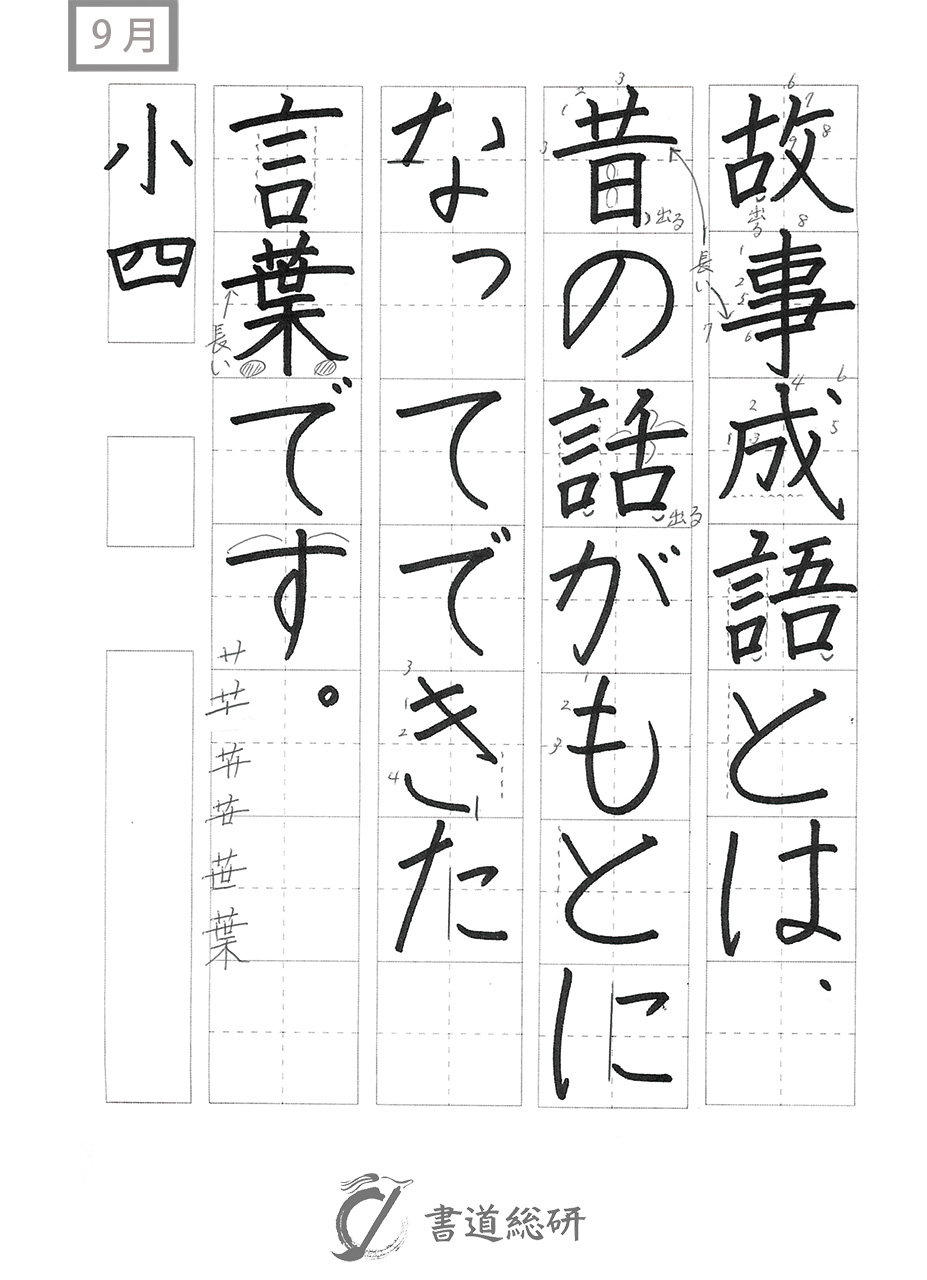 9月
故事成語とは、
昔の話がもとに
なってできた
言葉です。
小四
1
2
3
3
6
7
8
9
出る
出る
8
1
2
5
7
6
長い
4
6
2
5
1
3
出る
1
2
3
3
1
2
4
長い
葉
書道総研